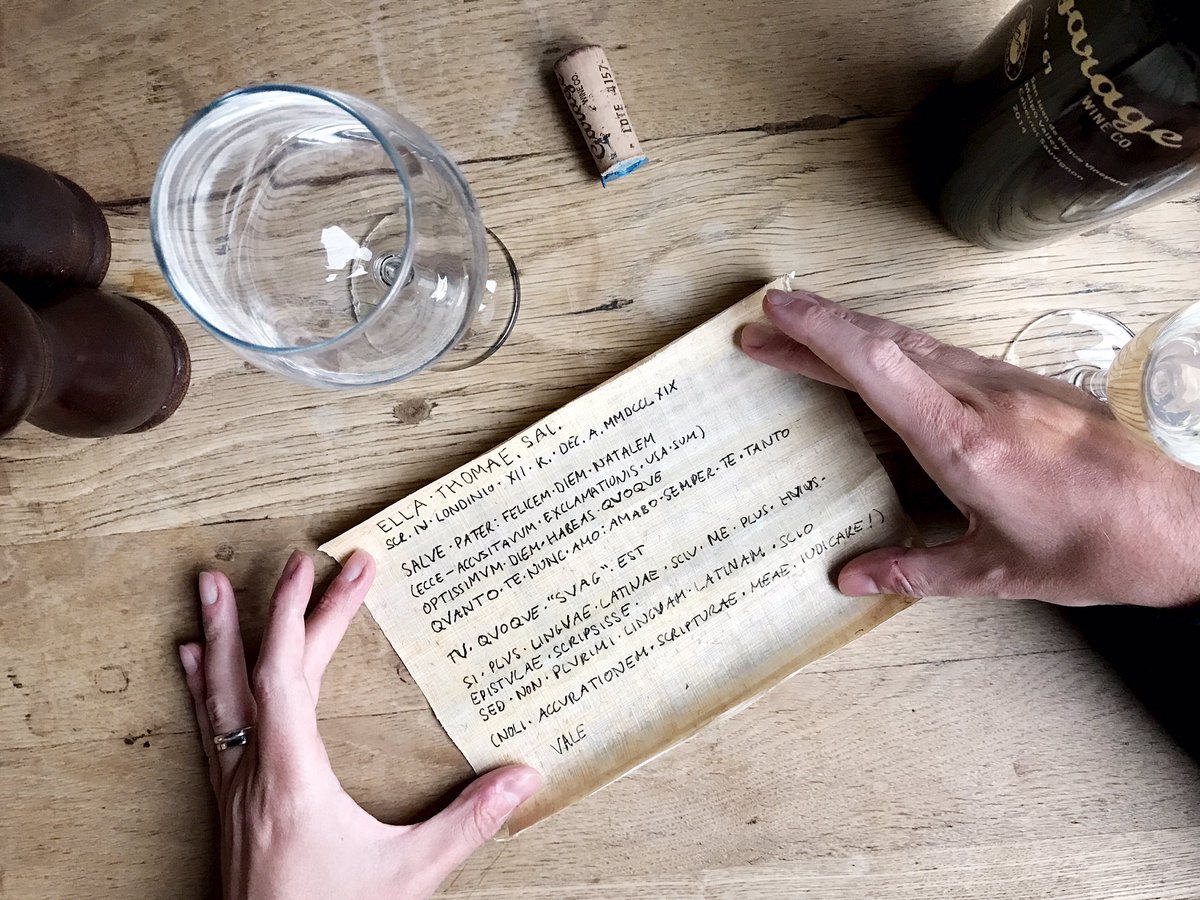 ELLA · THOMAE · SAL.
SCR. IN · LONDINIO · XIII · K · DEC. A. MMDCCLXIX
SALVE · PATER: FELICEM · DIEM · NATALEM
(ECCE – ACCVSITAVUM · EXCLAMATIONIS · USA · SUM)
OPTISSIMVM · DIEM · HABEAS · QVOQVE
QVANTO · TE · NUNC · AMO: AMABO · SEMPER · TE · TANTO
TV · QVOQVE · "SVAG" · EST
SI · PLVS · LINGVAE · LATINAE · SCIV · ME · PLUS · HVIVS ·
EPISTVLAE · SCRIPSISSE ·
SED · NON · PLVRIMI · LINGVAM · LATINAM · SCIO
(NOLI · ACCVRATIONEM · SCRIPTURAE · MEAE · IUDICARE!)
VALE
garage
WINE CO.
LOT # 61
2014
Garage
WINE CO.
LOTE 4157-